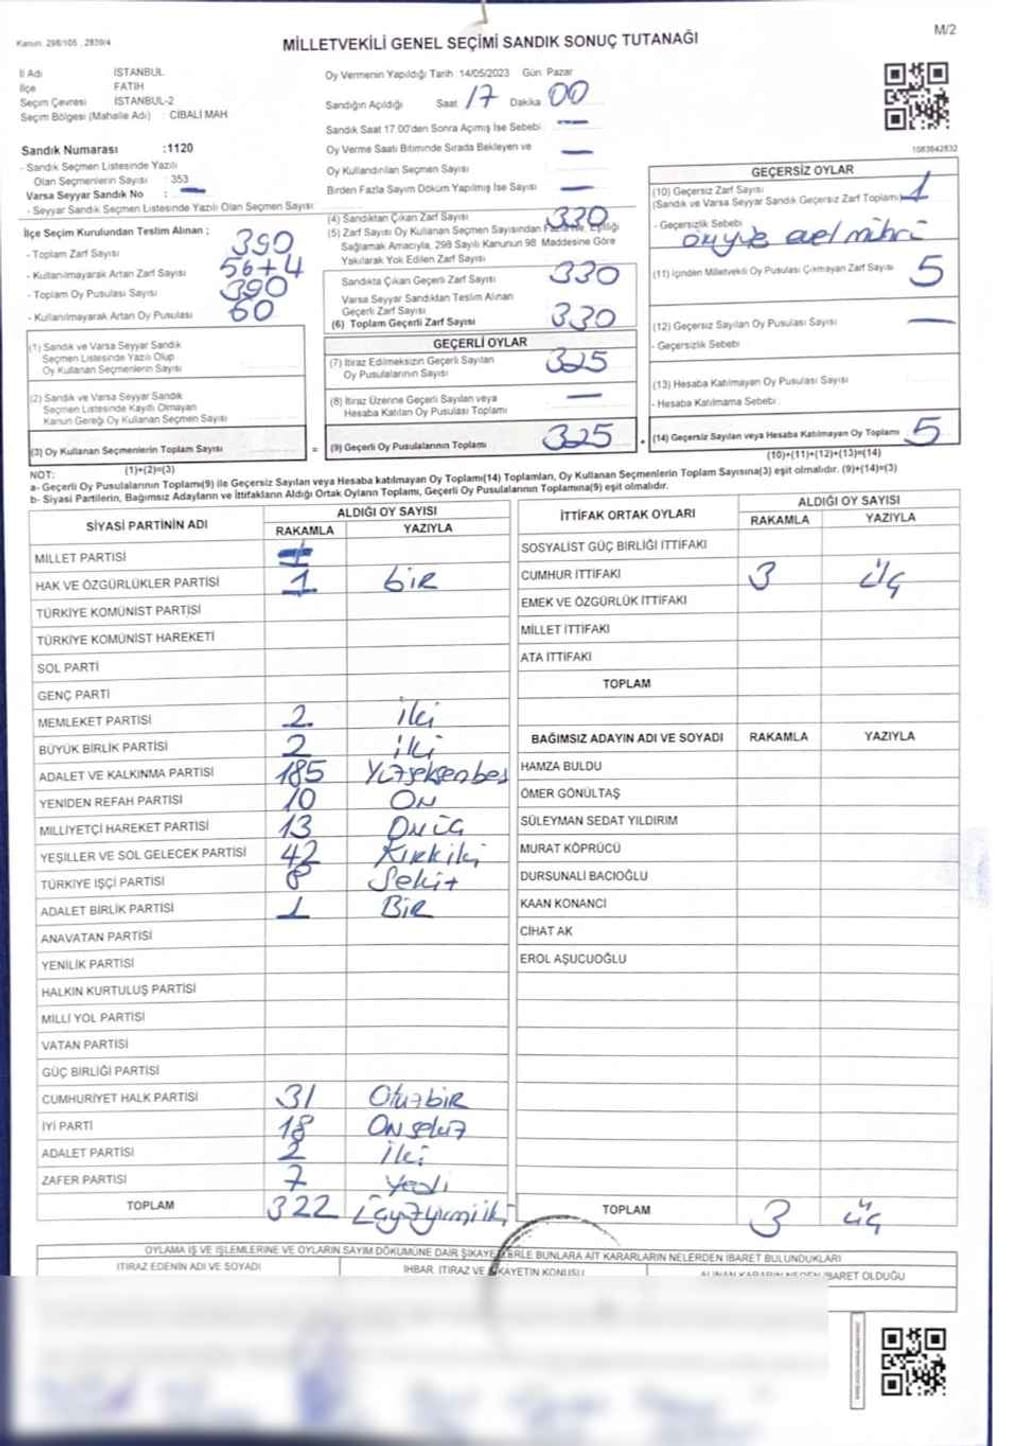 Kanun: 298/105 , 2839/4
M/2
MİLLETVEKİLİ GENEL SEÇİMİ SANDIK SONUÇ TUTANAĞI
İl Adı İSTANBUL
İlçe FATİH
Seçim Çevresi İSTANBUL-2
Seçim Bölgesi (Mahalle Adı) : CİBALİ MAH
Sandık Numarası :1120
- Sandık Seçmen Listesinde Yazılı
Olan Seçmenlerin Sayısı 353
Varsa Seyyar Sandık No : —
- Seyyar Sandık Seçmen Listesinde Yazılı Olan Seçmen Sayısı:
Oy Vermenin Yapıldığı Tarih :14/05/2023 Gün: Pazar
Sandığın Açıldığı Saat 17 Dakika 00
Sandık Saat 17.00'den Sonra Açımış İse Sebebi —
Oy Verme Saati Bitiminde Sırada Bekleyen ve
Oy Kullandırılan Seçmen Sayısı —
Birden Fazla Sayım Döküm Yapılmış İse Sayısı —
1083642832
İlçe Seçim Kurulundan Teslim Alınan ;
- Toplam Zarf Sayısı 390
- Kullanılmayarak Artan Zarf Sayısı 56+4
- Toplam Oy Pusulası Sayısı 390
- Kullanılmayarak Artan Oy Pusulası 60
(1) Sandık ve Varsa Seyyar Sandık
Seçmen Listesinde Yazılı Olup
Oy Kullanan Seçmenlerin Sayısı
(2) Sandık ve Varsa Seyyar Sandık
Seçmen Listesinde Kayıtlı Olmayan
Kanun Gereği Oy Kullanan Seçmen Sayısı
(3) Oy Kullanan Seçmenlerin Toplam Sayısı =
(1)+(2)=(3)
(4) Sandıktan Çıkan Zarf Sayısı 330
(5) Zarf Sayısı Oy Kullanan Seçmen Sayısından Eşitliği
Sağlamak Amacıyla, 298 Sayılı Kanunun 98 Maddesine Göre
Yakılarak Yok Edilen Zarf Sayısı
Sandıkta Çıkan Geçerli Zarf Sayısı 330
Varsa Seyyar Sandıktan Teslim Alınan
Geçerli Zarf Sayısı
(6) Toplam Geçerli Zarf Sayısı 330
GEÇERLİ OYLAR
(7) İtiraz Edilmeksizin Geçerli Sayılan
Oy Pusulalarının Sayısı 325
(8) İtiraz Üzerine Geçerli Sayılan veya
Hesaba Katılan Oy Pusulası Toplamı —
(9) Geçerli Oy Pusulalarının Toplamı 325
GEÇERSİZ OYLAR
(10) Geçersiz Zarf Sayısı
(Sandık ve Varsa Seyyar Sandık Geçersiz Zarf Toplamı) 1
- Geçersizlik Sebebi
(11) İçinden Milletvekili Oy Pusulası Çıkmayan Zarf Sayısı 5
(12) Geçersiz Sayılan Oy Pusulası Sayısı —
- Geçersizlik Sebebi
(13) Hesaba Katılmayan Oy Pusulası Sayısı
- Hesaba Katılmama Sebebi
(14) Geçersiz Sayılan veya Hesaba Katılmayan Oy Toplamı 5
(10)+(11)+(12)+(13)=(14)
NOT:
a- Geçerli Oy Pusulalarının Toplamı(9) ile Geçersiz Sayılan veya Hesaba katılmayan Oy Toplamı(14) Toplamları, Oy Kullanan Seçmenlerin Toplam Sayısına(3) eşit olmalıdır. (9)+(14)=(3)
b- Siyasi Partilerin, Bağımsız Adayların ve İttifakların Aldığı Ortak Oyların Toplamı, Geçerli Oy Pusulalarının Toplamına(9) eşit olmalıdır.
SİYASİ PARTİNİN ADI ALDIĞI OY SAYISI
RAKAMLA YAZIYLA
MİLLET PARTİSİ
HAK VE ÖZGÜRLÜKLER PARTİSİ 1 bir
TÜRKİYE KOMÜNİST PARTİSİ
TÜRKİYE KOMÜNİST HAREKETİ
SOL PARTİ
GENÇ PARTİ
MEMLEKET PARTİSİ 2 iki
BÜYÜK BİRLİK PARTİSİ 2 iki
ADALET VE KALKINMA PARTİSİ 185 Yüzseksenbeş
YENİDEN REFAH PARTİSİ 10 ON
MİLLİYETÇİ HAREKET PARTİSİ 13 Onüç
YEŞİLLER VE SOL GELECEK PARTİSİ 42 Kırkiki
TÜRKİYE İŞÇİ PARTİSİ 8 Sekiz
ADALET BİRLİK PARTİSİ 1 Bir
ANAVATAN PARTİSİ
YENİLİK PARTİSİ
HALKIN KURTULUŞ PARTİSİ
MİLLİ YOL PARTİSİ
VATAN PARTİSİ
GÜÇ BİRLİĞİ PARTİSİ
CUMHURİYET HALK PARTİSİ 31 Otuzbir
İYİ PARTİ 18 Onsekiz
ADALET PARTİSİ 2 iki
ZAFER PARTİSİ 7 yedi
TOPLAM 322 üçyüzyirmiiki
İTTİFAK ORTAK OYLARI ALDIĞI OY SAYISI
RAKAMLA YAZIYLA
SOSYALİST GÜÇ BİRLİĞİ İTTİFAKI
CUMHUR İTTİFAKI 3 üç
EMEK VE ÖZGÜRLÜK İTTİFAKI
MİLLET İTTİFAKI
ATA İTTİFAKI
TOPLAM
BAĞIMSIZ ADAYIN ADI VE SOYADI RAKAMLA YAZIYLA
HAMZA BULDU
ÖMER GÖNÜLTAŞ
SÜLEYMAN SEDAT YILDIRIM
MURAT KÖPRÜCÜ
DURSUNALİ BACIOĞLU
KAAN KONANCI
CİHAT AK
EROL AŞUCUOĞLU
TOPLAM 3 üç
OYLAMA İŞ VE İŞLEMLERİNE VE OYLARIN SAYIM DÖKÜMÜNE DAİR ŞİKAYETLERLE BUNLARA AİT KARARLARIN NELERDEN İBARET BULUNDUKLARI
İTİRAZ EDENİN ADI VE SOYADI
İHBAR, İTİRAZ VE ŞİKAYETİN KONUSU
ALINAN KARARIN NEDEN İBARET OLDUĞU